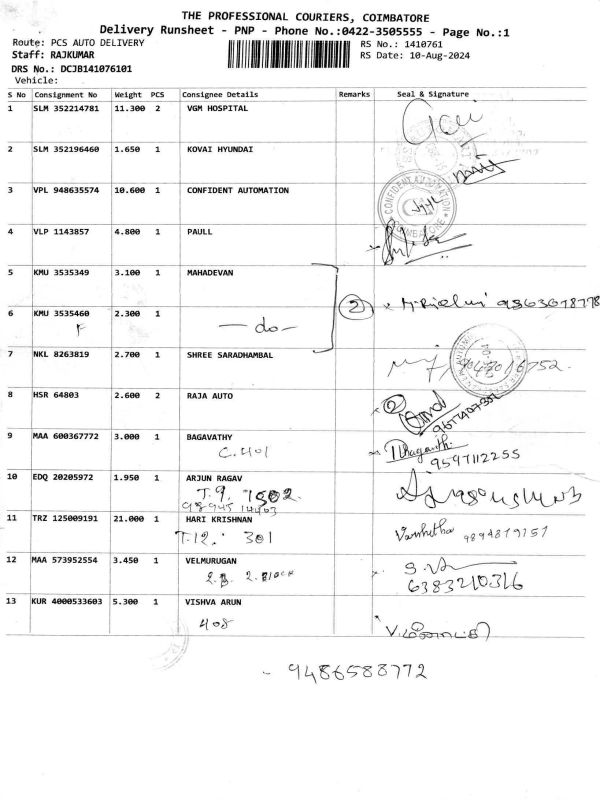 THE PROFESSIONAL COURIERS, COIMBATORE
Delivery Runsheet - PNP - Phone No.:0422-3505555 - Page No.:1
Route: PCS AUTO DELIVERY
RS No.: 1410761
Staff: RAJKUMAR
RS Date: 10-Aug-2024
DRS No.: DCJB141076101
Vehicle:
S No Consignment No Weight PCS Consignee Details Remarks Seal & Signature
1 SLM 352214781 11.300 2 VGM HOSPITAL
2 SLM 352196460 1.650 1 KOVAI HYUNDAI
3 VPL 948635574 10.600 1 CONFIDENT AUTOMATION
CONFIDENT AUTOMATION
COIMBATORE
4 VLP 1143857 4.800 1 PAULL
5 KMU 3535349 3.100 1 MAHADEVAN
2
6 KMU 3535460 2.300 1
- do -
7 NKL 8263819 2.700 1 SHREE SARADHAMBAL
8 HSR 64803 2.600 2 RAJA AUTO
2
9 MAA 600367772 3.000 1 BAGAVATHY
C. 401
9597112255
10 EDQ 20205972 1.950 1 ARJUN RAGAV
T.9. 1502.
98945 14403
11 TRZ 125009191 21.000 1 HARI KRISHNAN
T.12. 301
Vanhitha 9894819757
12 MAA 573952554 3.450 1 VELMURUGAN
2. BLOCK
6383210316
13 KUR 4000533603 5.300 1 VISHVA ARUN
408
V.மீனாட்சி
- 9486588772